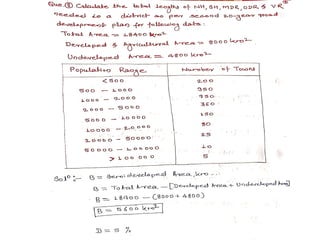 Que. ③ Calculate the total lengths of NH, SH, MDR, ODR & VR
needed in a district as per second 20-year road
development plan for following data:
Total Area = 18400 km²
Developed & Agricultural Area = 8000 km²
Undeveloped Area = 4800 km²
Population Range Number of Towns
<500 200
500 - 1000 350
1000 - 2000
2000 - 5000
5000 - 10000 150
10000 - 20000 80
20000 - 50000 25
50000 - 100000 10
> 100 000 5
Solⁿ:- B = Semideveloped Area, km²...
B = Total Area - [Developed Area + Undeveloped Area]
B = 18400 - (8000 + 4800)
B = 5600 km²
D = 5 %